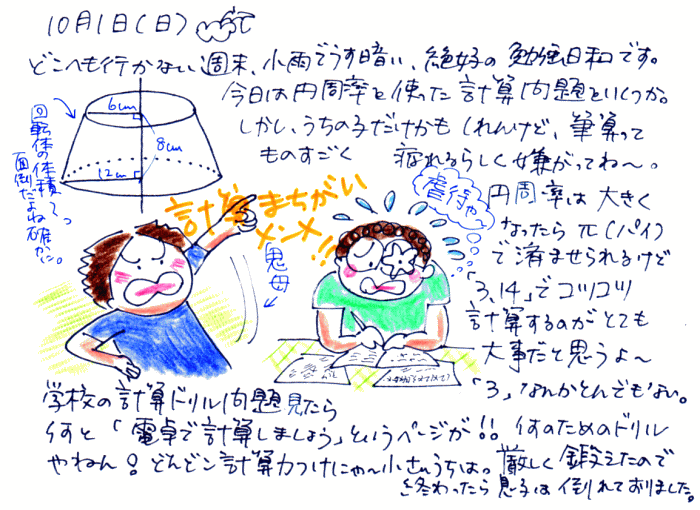 10月1日(日)
どこへも行かない週末、小雨でうす暗い、絶好の勉強日和です。
今日は円周率を使った計算問題をいくつか。
しかし、うちの子だけかもしれんけど、筆算って
ものすごく 疲れるらしく嫌がってね〜。
6cm
8cm
12cm
回転体の体積〜っ
面倒だよね確かに。
計算まちがい
メンメ!!
鬼母
虐待や
円周率は大きく
なったらπ(パイ)
で済ませられるけど
「3.14」でコツコツ
計算するのがとても
大事だと思うよ〜
「3」なんかとんでもない。
学校の計算ドリル問題見たら
何と「電卓で計算しましょう」というページが!!何のためのドリル
やねん!?どんどン計算力つけにゃ〜小さいうちは。厳しく鍛えたので
終わったら息子は倒れておりました。